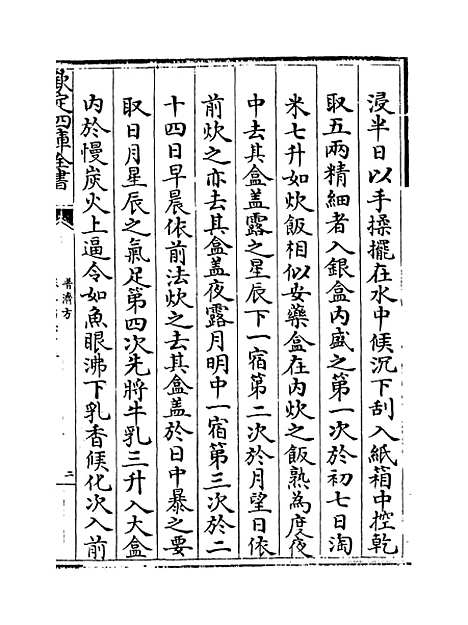 浸半日以手搡擺在水中候沉下刮入紙箱中控乾
取五兩精細者入銀盒内盛之第一次於初七日淘
米七升如炊飯相似安藥盒在内炊之飯熟為度夜
中去其盒盖露之星辰下一宿第二次於月望日依
前炊之亦去其盒盖夜露月明中一宿第三次於二
十四日早晨依前法炊之去其盒盖於日中暴之要
取日月星辰之氣足第四次先將牛乳三升入大盒
内於慢炭火上逼令如魚眼沸下乳香候化次入前
欽定四庫全書
普濟方
二